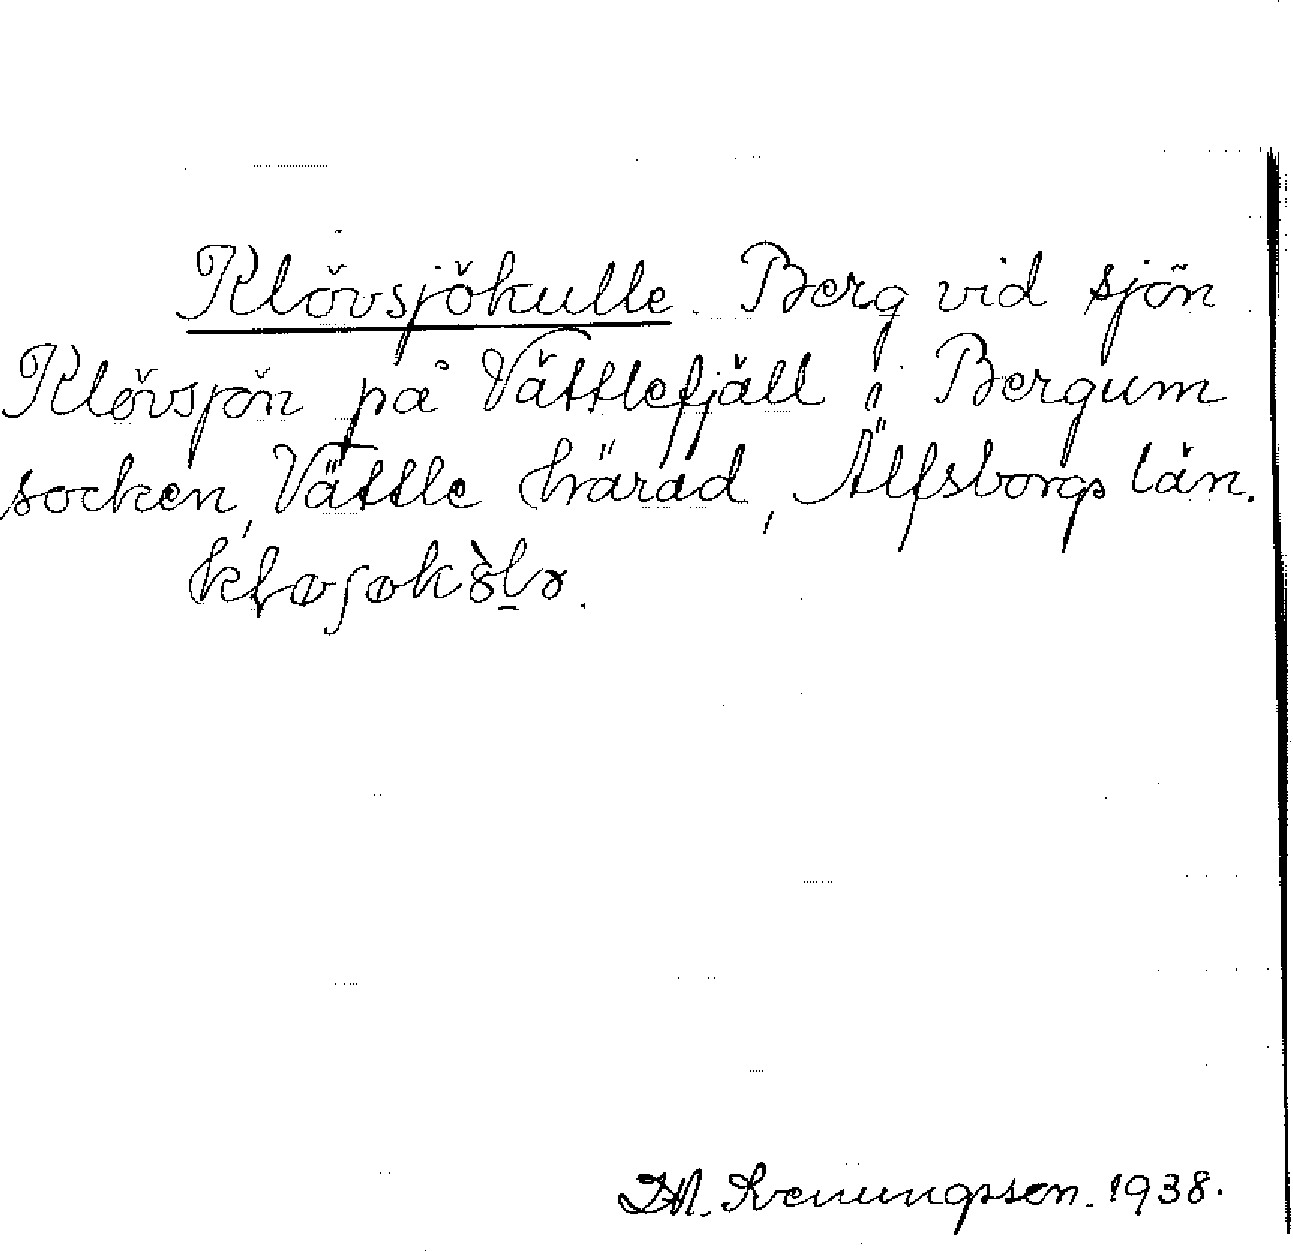 Klövsjökulle. Berg vid sjön
Klövsjön på Vättlefjäll i Bergum
socken, Vättle härad, Älfsborgs län.
Svenungsson. 1938.